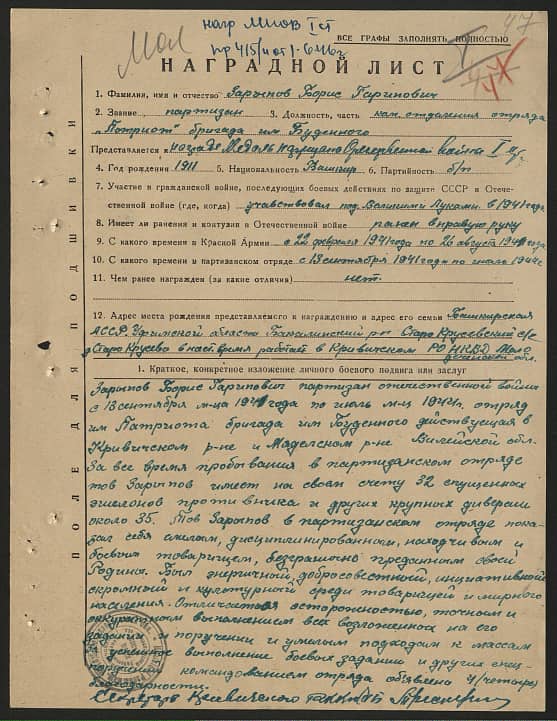 47
Мол
нагр МПОВ I ст
пр 415/н от 1-6 46г
ВСЕ ГРАФЫ ЗАПОЛНЯТЬ ПОЛНОСТЬЮ
НАГРАДНОЙ ЛИСТ
1. Фамилия, имя и отчество Зарыпов Борис Гарипович
2. Звание партизан 3. Должность, часть ком. отделения отряда
„Патриот" бригада им. Буденного
Представляется к награде Медаль Отечественной войны I
4. Год рождения 1911 5. Национальность Башкир 6. Партийность б/п
7. Участие в гражданской войне, последующих боевых действиях по защите СССР и Отече-
ственной войне (где, когда) участвовал под Великими Луками в 1941 года
8. Имеет ли ранения и контузии в Отечественной войне ранен в правую руку
9. С какого времени в Красной Армии с 22 февраля 1941 года по 26 августа 1941 года
10. С какого времени в партизанском отряде с 13 сентября 1941 года по июль 1944г
11. Чем ранее награжден (за какие отличия) нет.
12. Адрес места рождения представляемого к награждению и адрес его семьи Башкирская
АССР, Уфимской области Бакалинский р-н Старо Крусевский с/с
д Старо Крусево в наст время работает в Кривичском РО НКВД Моло
дечненской обл.
1. Краткое, конкретное изложение личного боевого подвига или заслуг
Зарыпов Борис Гарипович партизан отечественной войны
с 13 сентября м-ца 1941 года по июль м-ц 1944г. отряд
им Патриота бригада им Буденного действующая в
Кривичском р-не и Мяделском р-не Вилейской обл.
За все время пробывания в партизанском отряде
тов Зарыпов имеет на своем счету 32 спущенных
эшелонов противника и других крупных диверсии
около 35. Тов Зарыпов в партизанском отряде пока-
зал себя смелым, дисциплинированным, находчивым и
боевым товарищем, безграшочно преданным своей
Родине. Был энергичный, добросовестный, инициативный
скромный и культурной среди товарищей и мирного
населения. Отличался осторожностью, точным и
аккуратным выполнением всех возложенных на его
задании и поручении и умелым подходом к массам
За успешные выполнение боевых задании и других спец-
поручении командованием отряда объявлено 4 (четыре)
благодарности.
Секретарь Кривичского
ПОЛЕ ДЛЯ ПОДШИВКИ